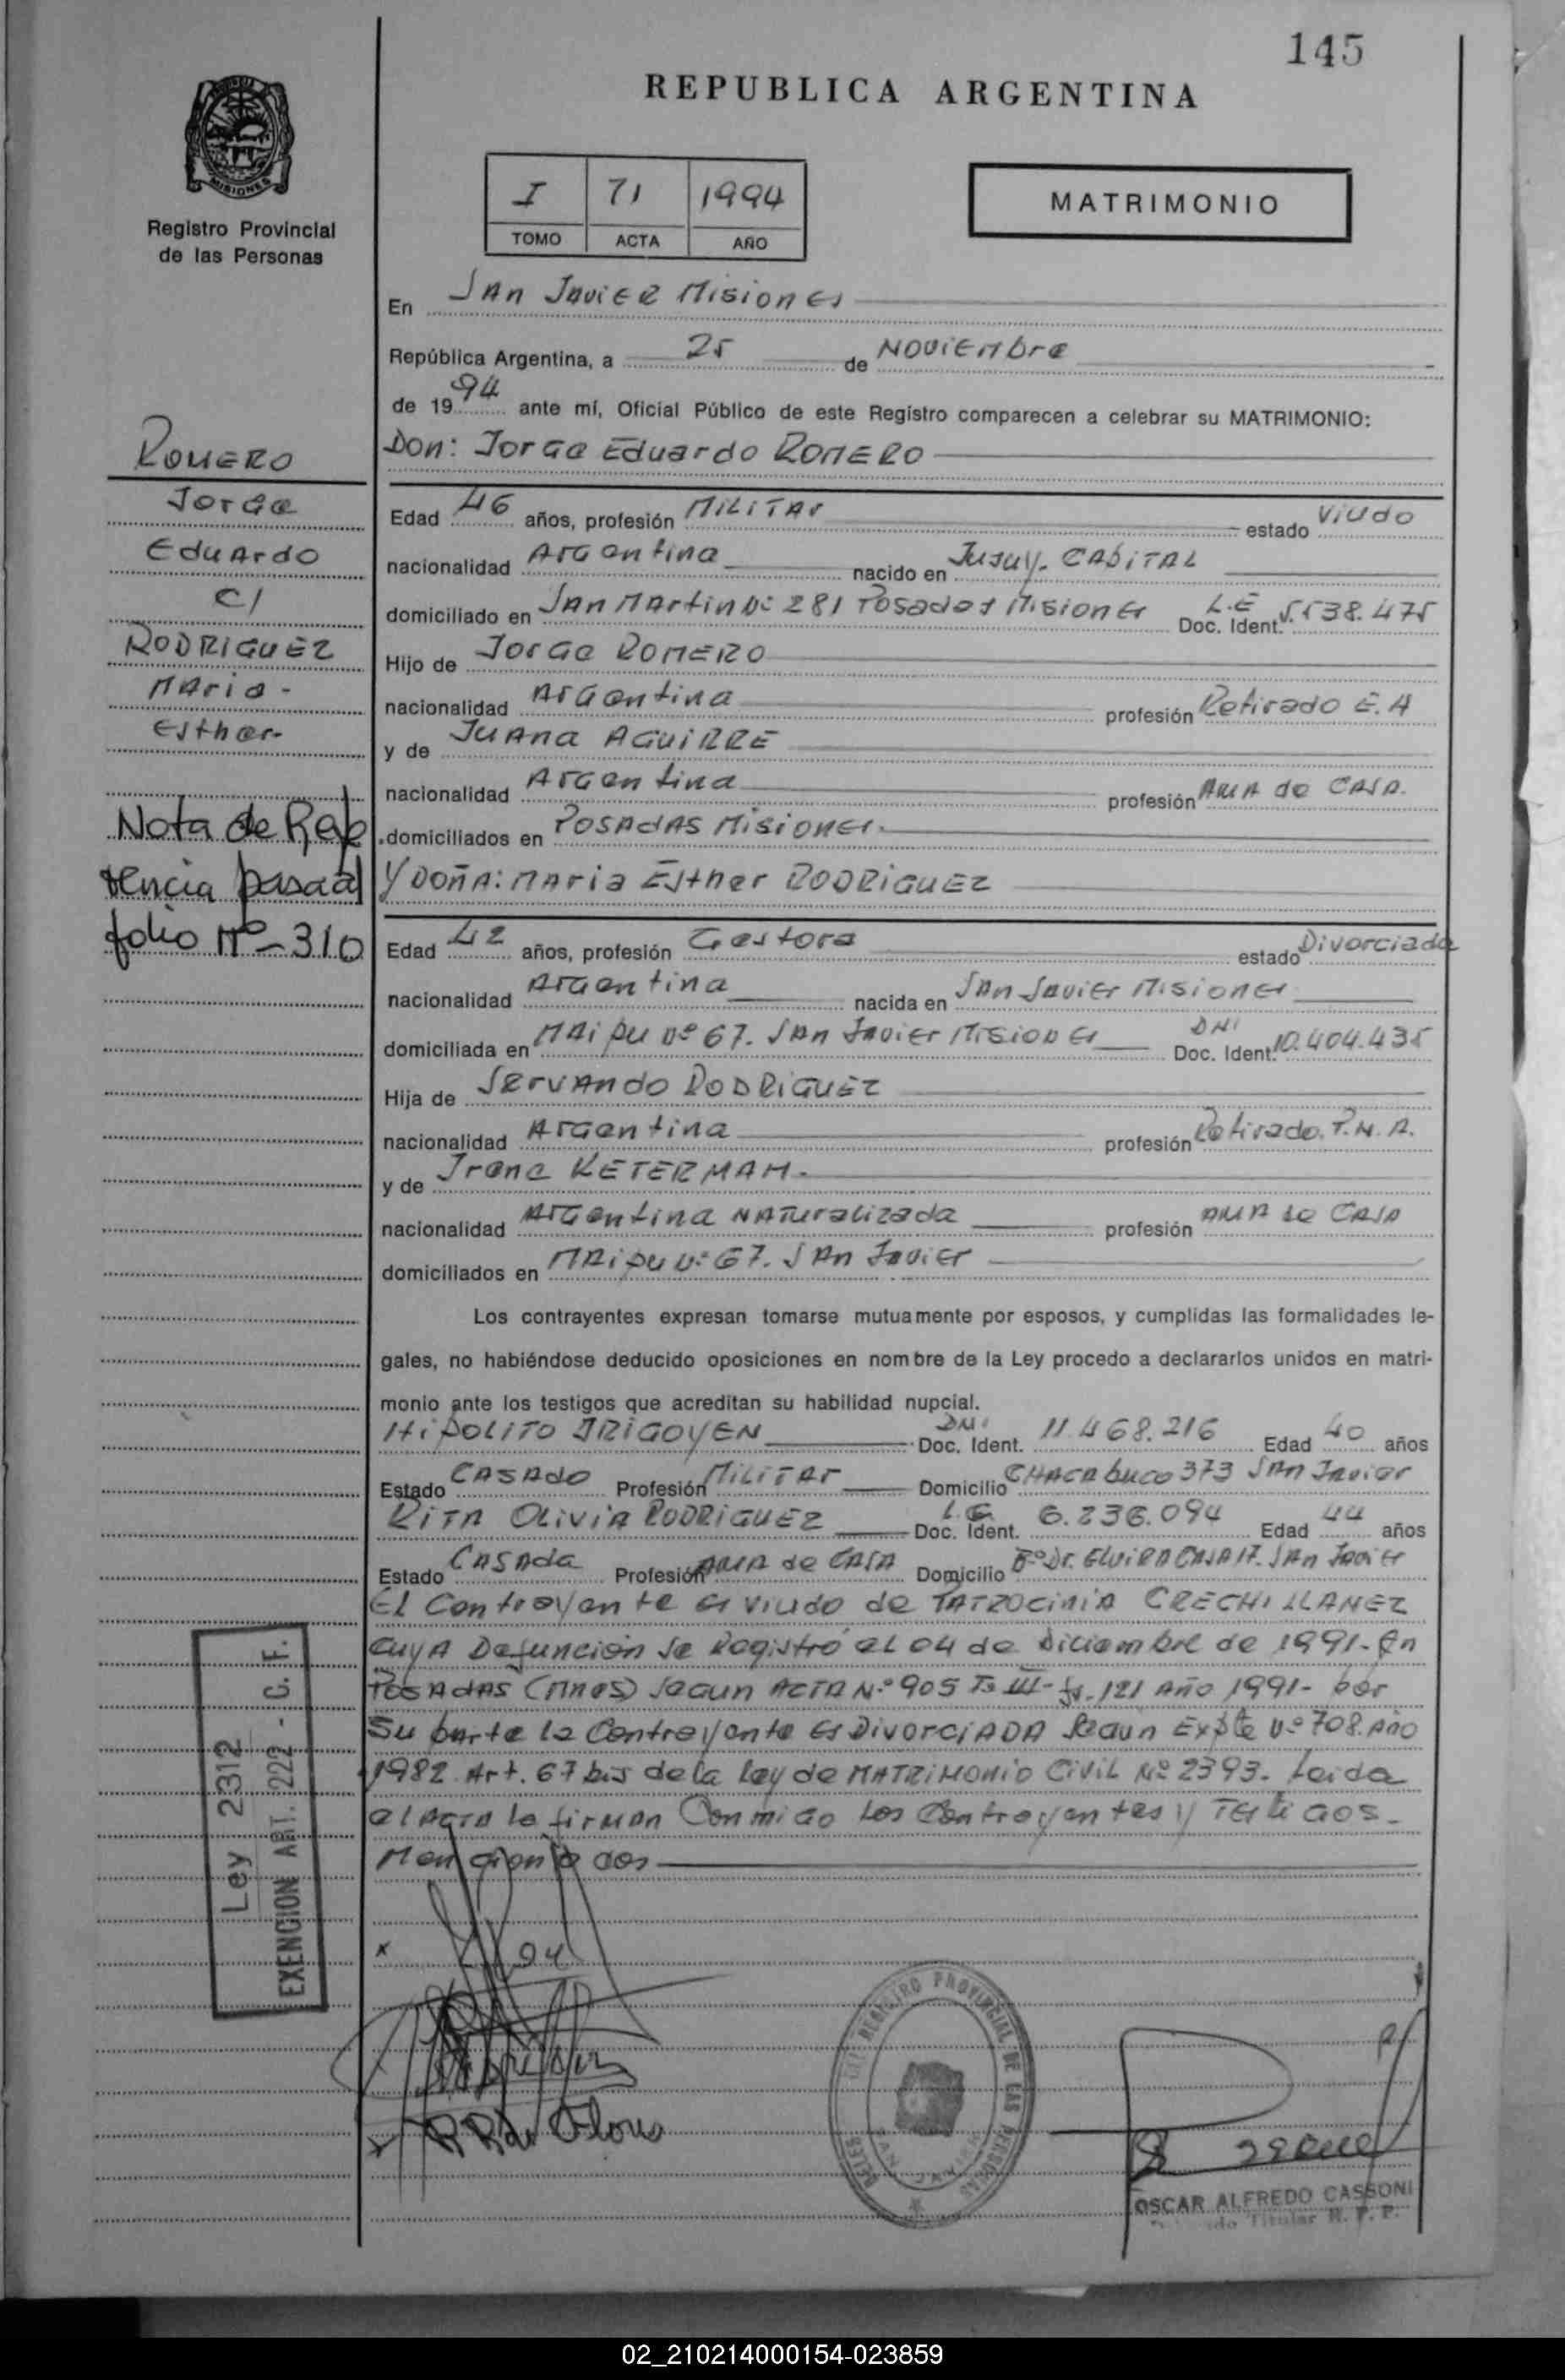 145
REPUBLICA ARGENTINA
MISIONES
Registro Provincial
de las Personas
I 71 1994
TOMO ACTA AÑO
MATRIMONIO
En San Javier Misiones
República Argentina, a 25 de Noviembre
de 1994 ante mí, Oficial Público de este Registro comparecen a celebrar su MATRIMONIO:
Don: Jorge Eduardo ROMERO
ROMERO
Jorge
Eduardo
c/
RODRIGUEZ
Maria-
Esther-
Nota de Refe
tencia pasa al
folio Nº-310
Edad 46 años, profesión Militar estado Viudo
nacionalidad Argentina nacido en Jujuy. CAPITAL
domiciliado en San Martin Nº 281 Posadas Misiones Doc. Ident. L.E 5.538.475
Hijo de Jorge ROMERO
nacionalidad Argentina profesión Retirado E.A
y de Juana AGUIRRE
nacionalidad Argentina profesión Ama de Casa.
domiciliados en Posadas Misiones.
Y DOÑA: Maria Esther RODRIGUEZ
Edad 42 años, profesión Gestora estado Divorciada
nacionalidad Argentina nacida en San Javier Misiones
domiciliada en Maipu Nº 67. San Javier Misiones Doc. Ident. DNI 10.404.435
Hija de Servando RODRIGUEZ
nacionalidad Argentina profesión Retirado. P.N.A.
y de Irene KETERMAN.
nacionalidad Argentina Naturalizada profesión Ama de Casa
domiciliados en Maipu Nº 67. San Javier
Los contrayentes expresan tomarse mutuamente por esposos, y cumplidas las formalidades le-
gales, no habiéndose deducido oposiciones en nombre de la Ley procedo a declararlos unidos en matri-
monio ante los testigos que acreditan su habilidad nupcial.
Hipolito IRIGOYEN Doc. Ident. DNI 11.468.216 Edad 40 años
Estado Casado Profesión Militar Domicilio CHACAbuco 373 San Javier
Rita Olivia RODRIGUEZ Doc. Ident. L.C. 6.236.094 Edad 44 años
Estado Casada Profesión Ama de Casa Domicilio Bº Dr. Elvira Casa 17. San Javier
El Contrayente es viudo de PATROCINIA CRECHI LLANEZ
cuya Defunción se Registró el 04 de Diciembre de 1991- En
Posadas (Mnes) segun ACTA Nº 905 Tº III- Fº 121 Año 1991- por
Su parte la Contrayente es DivorciADA Segun Expte Nº 708. Año
1982. Art. 67 bis de la Ley de MATRIMONIO CIVIL Nº 2393. Leida
el Acta la firman Conmigo los Contrayentes y Testigos-
Mencionados
Ley 2312
EXENCION ART. 222 - C. F.
REGISTRO PROVINCIAL DE LAS PERSONAS
SAN JAVIER
OSCAR ALFREDO CASSONI
Titular R. P. P.
02_210214000154-023859